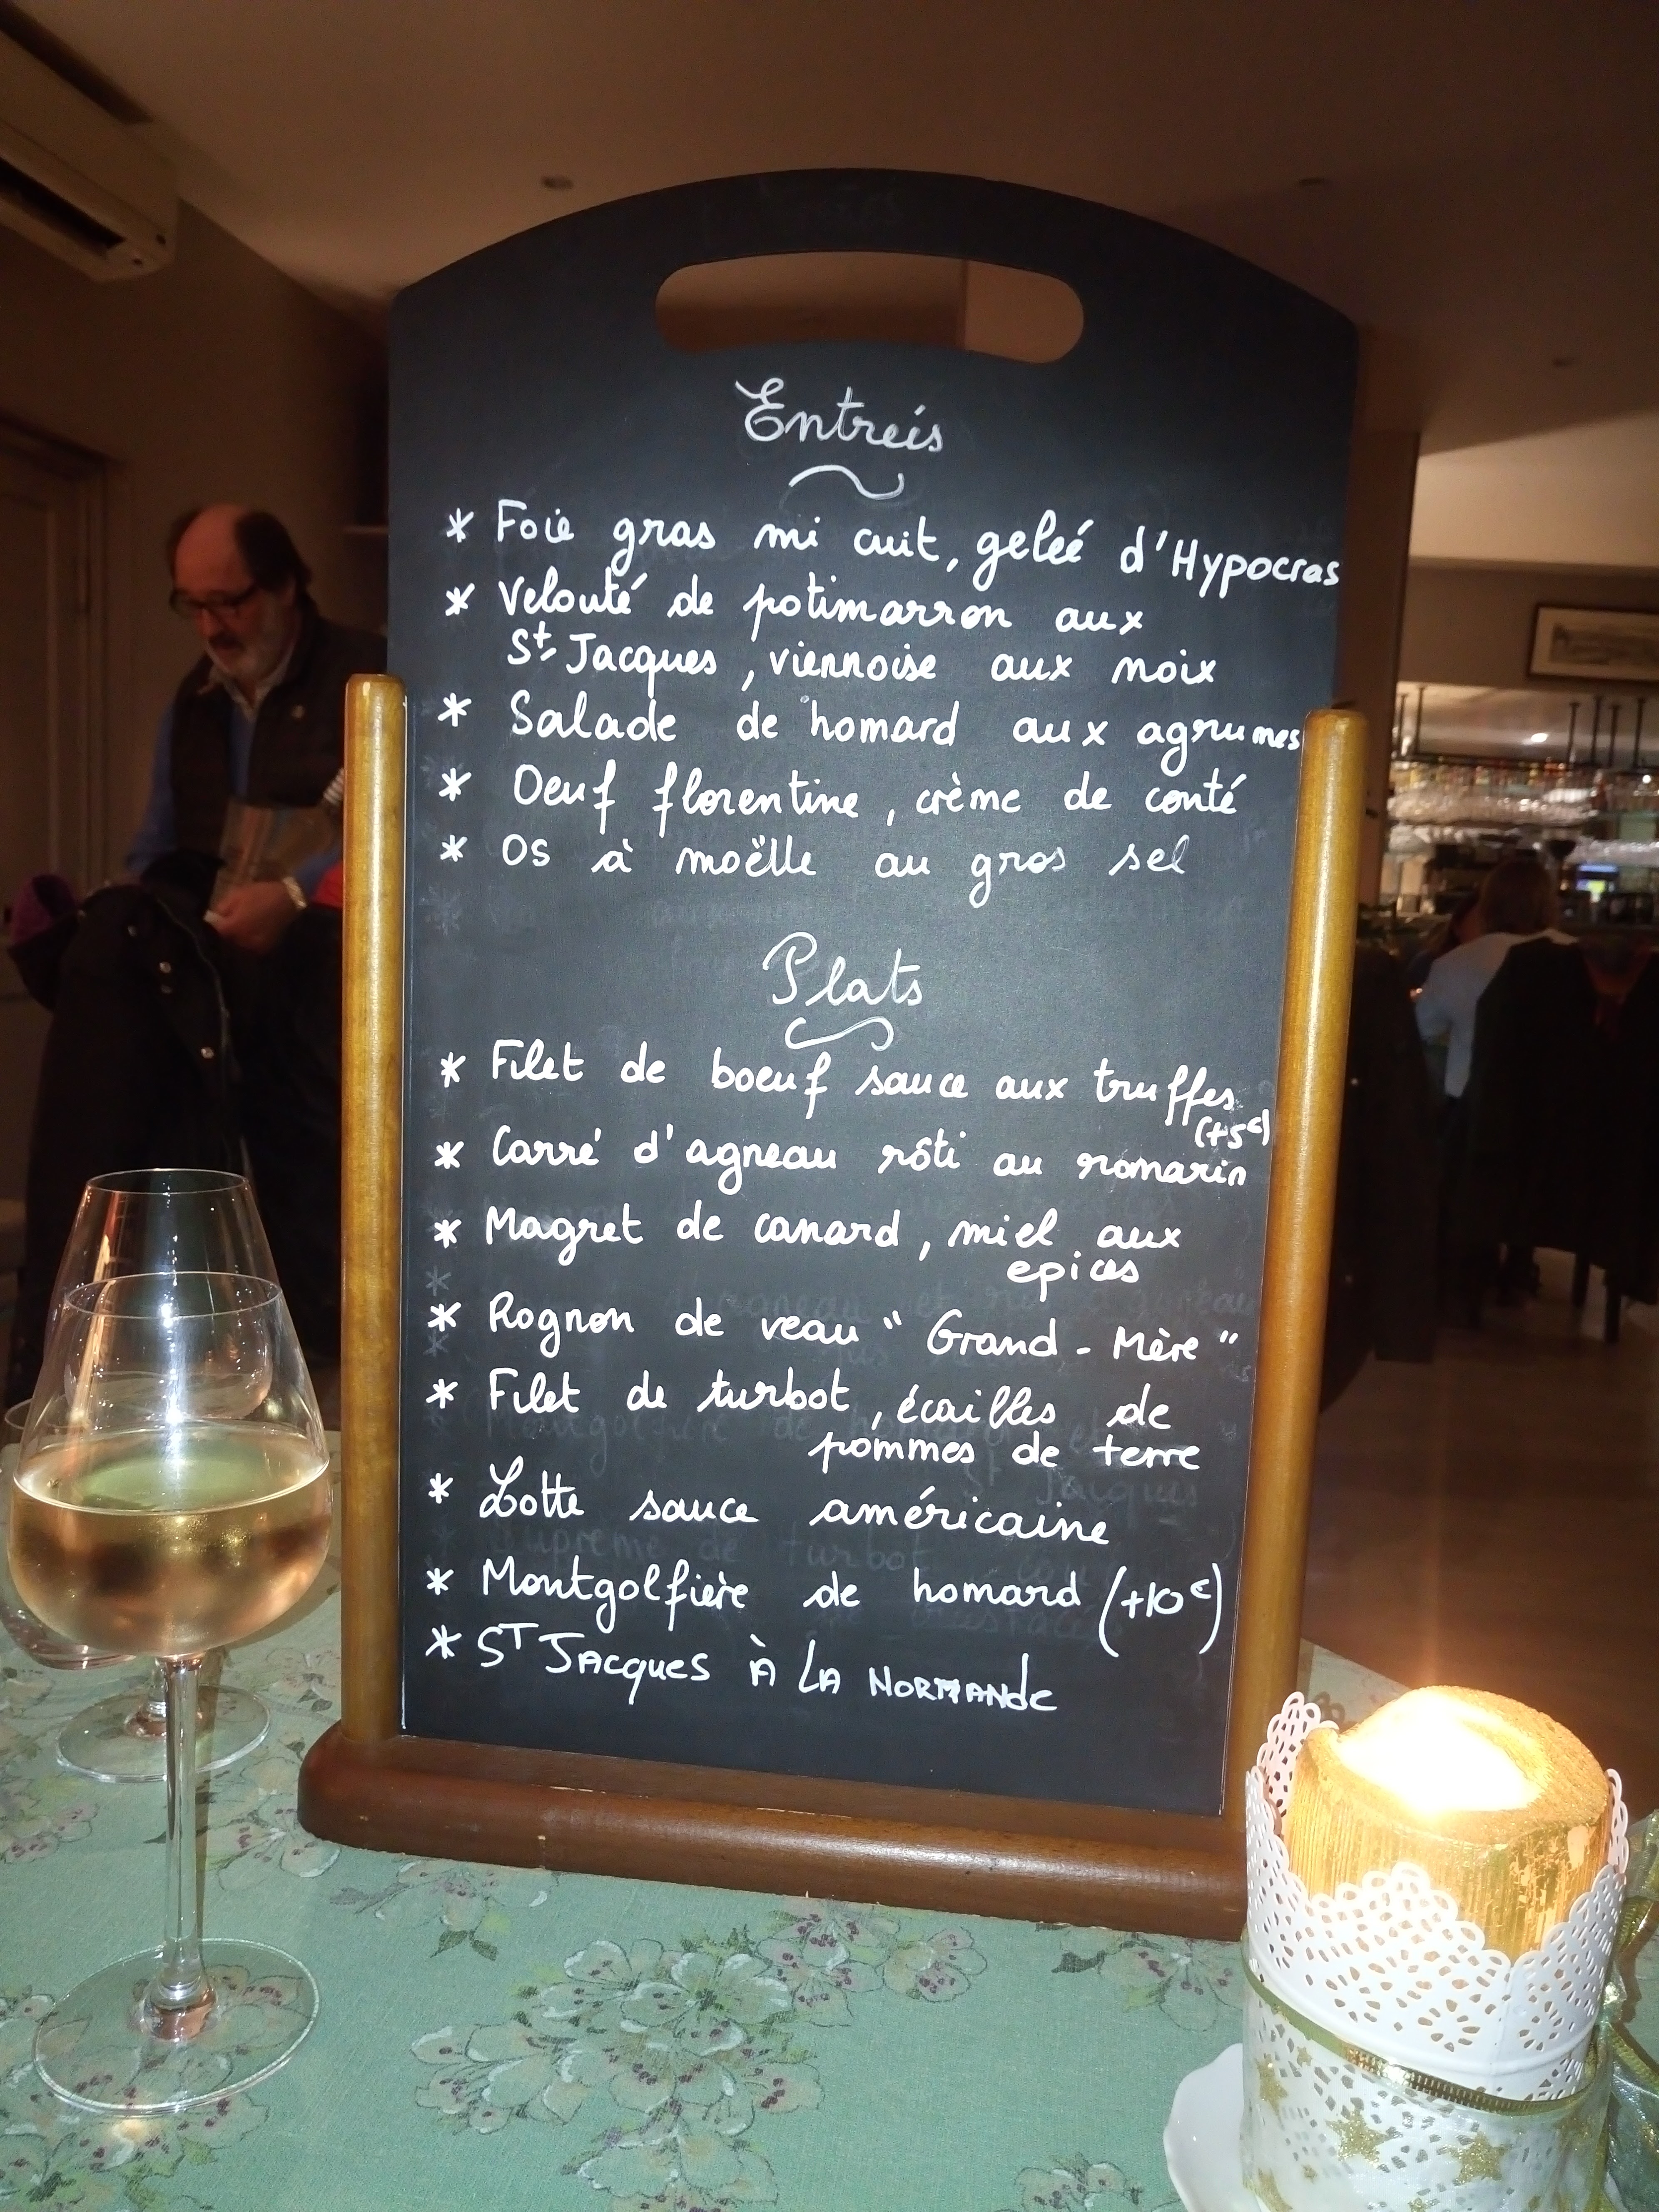 Entrées
* Foie gras mi cuit, geleé d'Hypocras
* Velouté de potimarron aux
St Jacques, viennoise aux noix
* Salade de homard aux agrumes
* Oeuf florentine, crème de conté
* Os à moëlle au gros sel
Plats
* Filet de boeuf sauce aux truffes
(+5€)
* Carré d'agneau rôti au romarin
* Magret de canard, miel aux
epices
* Rognon de veau "Grand-Mère"
* Filet de turbot, écailles de
pommes de terre
* Lotte sauce américaine
* Montgolfière de homard (+10€)
* ST JAcques À LA NORMANde